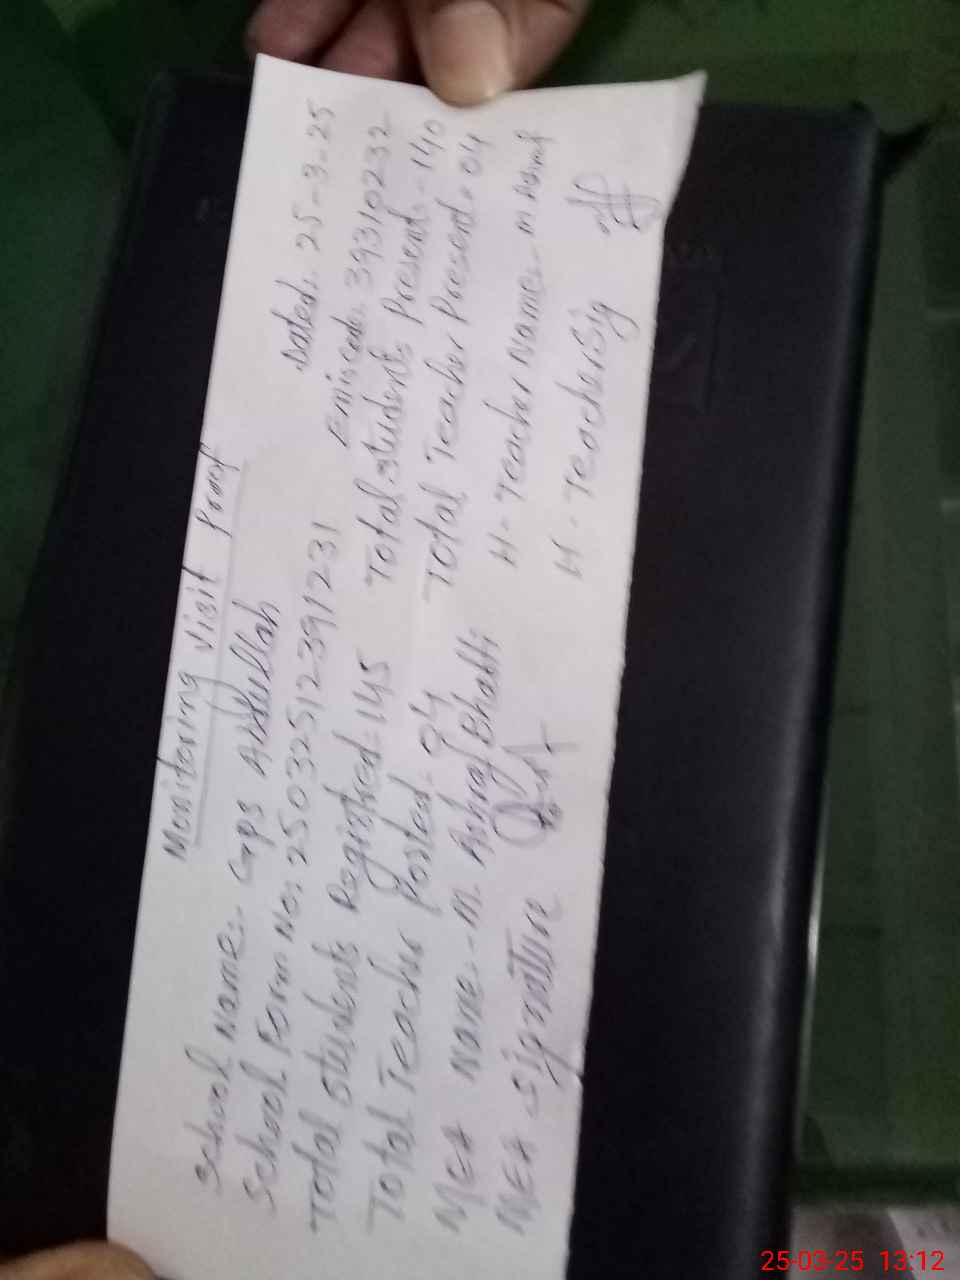 Monitering Visit Proof
School Name:- GPS Dated: 25-3-25
School Form No: 25032512391231 Emiscode: 39310232
Total students Registred = 145 Total students Present - 140
Total Teacher Posted = 04 Total Teacher Present = 04
MEA Name:- M. Ashraf Bhatti H-Teacher Name:- M Ashraf
MEA Signature H-Teacher Sig
25-03-25 13:12